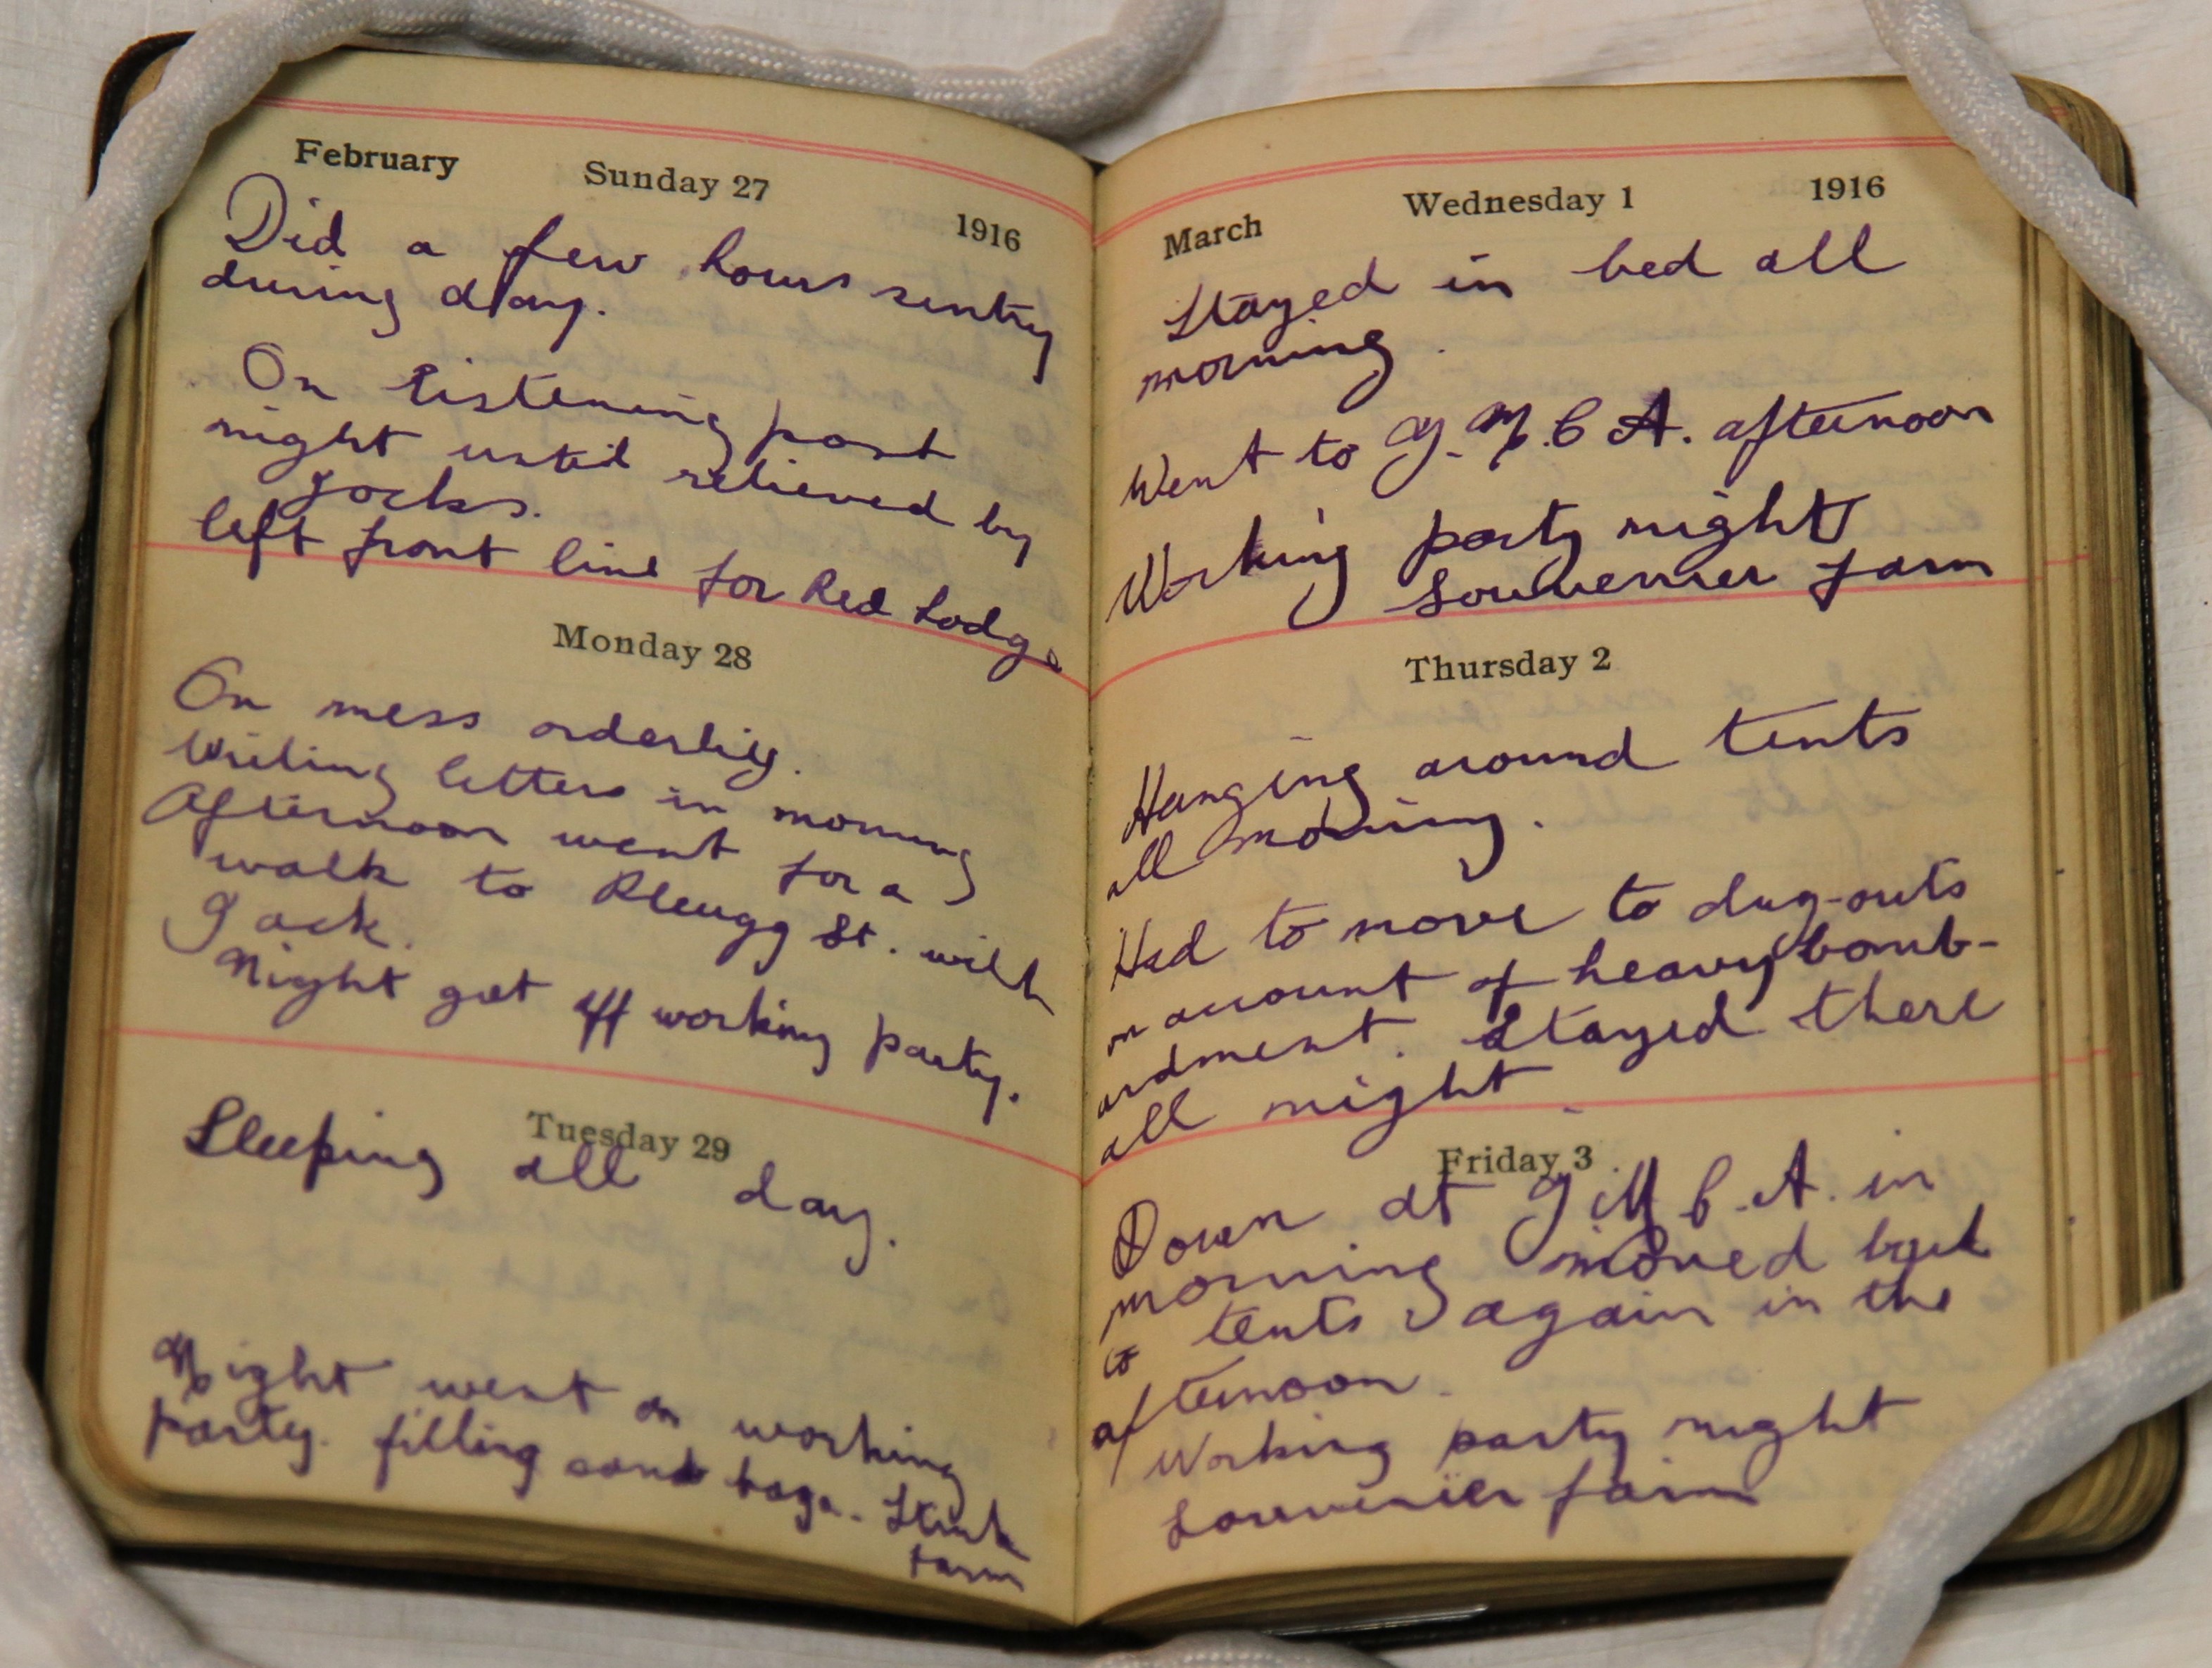 February Sunday 27 1916
Did a few hours sentry
during day.
On listening post
night until relieved by
Jocks.
left front line for Red Lodge
Monday 28
On mess orderly.
Writing letters in morning
Afternoon went for a
walk to Pleugg St. with
Jack.
Night got off working party.
Tuesday 29
Sleeping all day.
Night went on working
party. filling sand bags. Stink
farm
March Wednesday 1 1916
Stayed in bed all
morning.
Went to Y.M.C.A. afternoon
Working party night
Souvenier farm
Thursday 2
Hanging around tents
all morning.
Had to move to dug-outs
on account of heavy bomb-
ardment. Stayed there
all night.
Friday 3
Down at Y.M.C.A. in
morning moved back
to tents again in the
afternoon.
Working party night
Souvenier farm